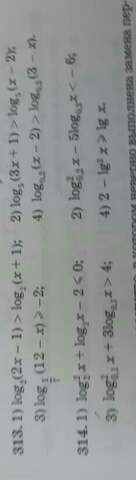 313. 1) log₂(2x − 1) > log₂(x + 1); 2) log₅(3x + 1) > log₅(x − 2);
3) log_{1/7}(12 − x) ≥ −2; 4) log₀,₅(x − 2) > log₀,₅(3 − x).
314. 1) log₂²x + log₂x − 2 ≤ 0; 2) log²₀,₂x − 5log₀,₂x < −6;
3) log²₀,₁x + 3log₀,₁x > 4; 4) 2 − lg²x ≥ lg x.
выполнена замена пер-